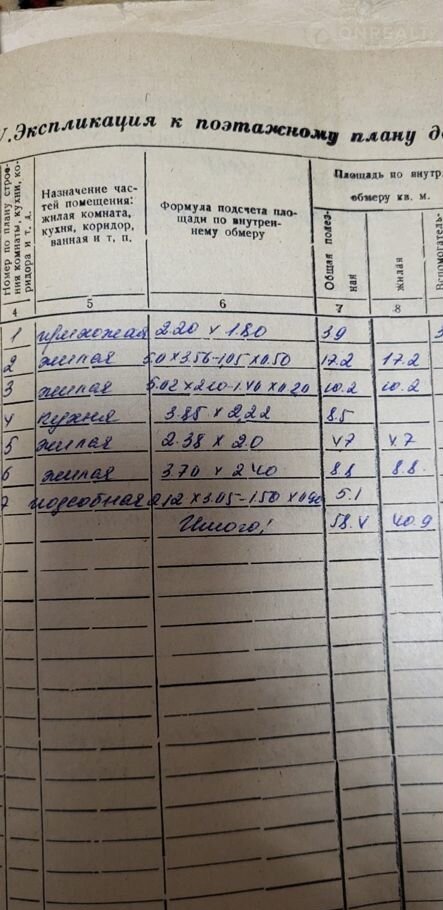 ONREALT
V. Экспликация к поэтажному плану д
Номер по плану строе-
ния комнаты, кухни, ко-
ридора и т. д.
Назначение час-
тей помещения:
жилая комната,
кухня, коридор,
ванная и т. п.
Формула подсчета пло-
щади по внутрен-
нему обмеру
Площадь по внутр.
обмеру кв. м.
Общая полез-
ная
жилая
Вспомогатель-
4 5 6 7 8
1 прихожая 2.20 х 1.80 3.9 3
2 жилая 5.0 х 3.56-1.05 х 0.50 17.2 17.2
3 жилая 10.2 10.2
4 кухня 3.85 х 2.22 8.5
5 жилая 2.38 х 2.0 4.7 4.7
6 жилая 3.70 х 2.40 8.8 8.8
7 подсобная 2.12 х 3.05-1.50 х 5.1
Итого: 58.4 40.9